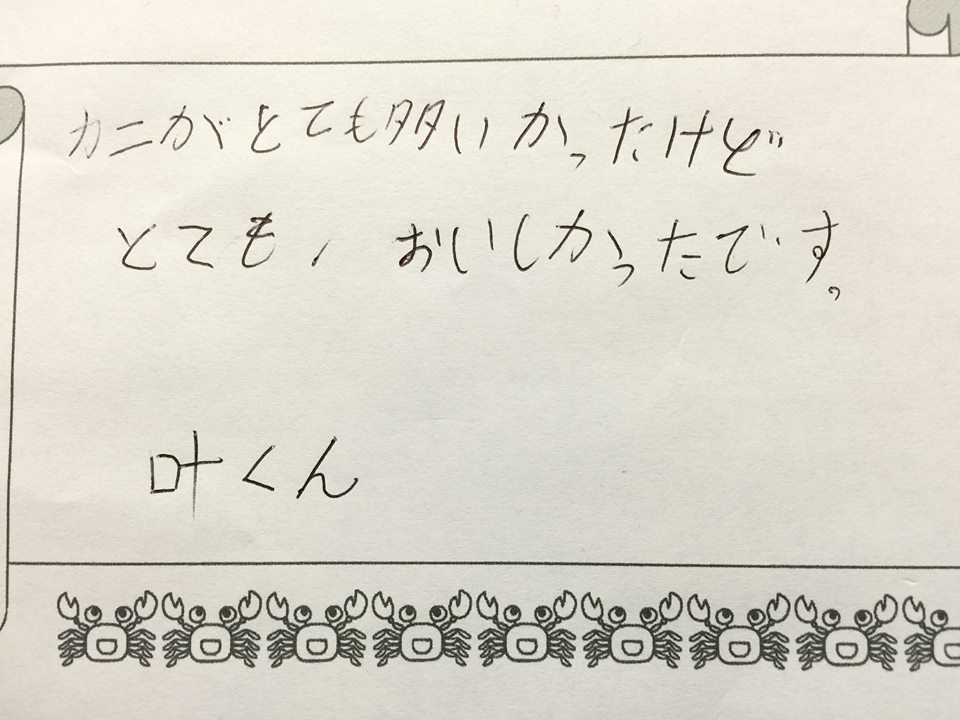 カニがとても多いかっただけど
とても、おいしかったです。
叶くん